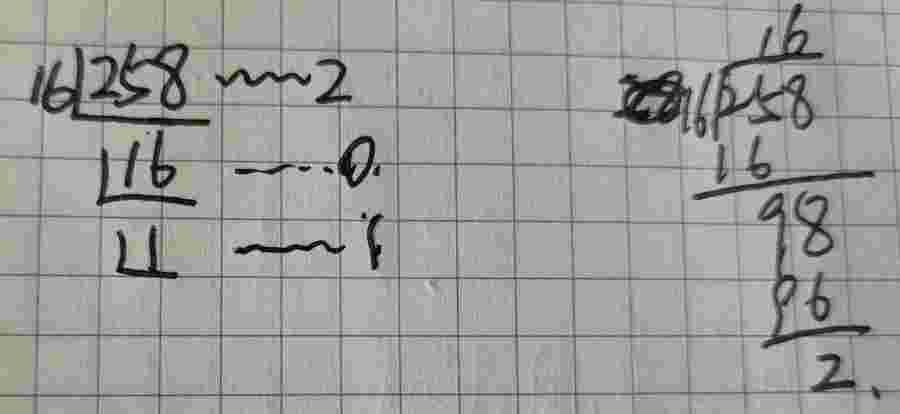 16 258 2
16 0.
1 1
16
16 258
16
98
96
2.